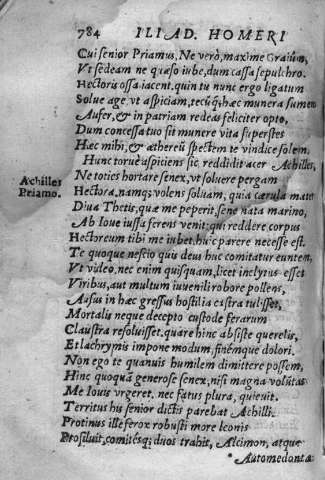 784 ILIAD. HOMERI
Cui senior Priamus, Ne verò, maxime Graiûm,
Vt sedeam ne quæso iube, dum cassa sepulchro.
Hectoris ossa iacent, quin tu nunc ergo ligatum
Solue age, vt aspiciam, tecũq; hæc munera sumens
Aufer, & in patriam redeas feliciter opto,
Dum concessa tuo sit munere vita superstes
Hæc mihi, & æthereũ spectem te vindice solem.
Hunc toruè aspiciens sic reddidit acer Achilles,
Ne toties hortare senex, vt soluere pergam
Achilles
Priamo.
Hectora, namq; volens soluam, quia cærula mater
Diua Thetis, quæ me peperit, sene nata marino,
Ab Ioue iussa ferens venit: qui reddere corpus
Hectoreum tibi me iubet, huic parere necesse est.
Te quoque nescio quis deus huc comitatur euntem,
Vt video, nec enim quisquam, licet inclytus esset
Viribus, aut multum iuuenili robore pollens,
Ausus in hæc gressus hostilia castra tulisset,
Mortalis neque decepto custode ferarum
Claustra resoluisset, quare hinc absiste querelis,
Et lachrymis impone modum, finémque dolori.
Non ego te quanuis humilem dimittere possem,
Hinc quoquã generose senex, nisi magna volũtas
Me Iouis vrgeret, nec fatus plura, quieuit.
Territus his senior dictis parebat Achilli.
Protinus ille ferox robusti more leonis
Prosiluit, comitésq; duos trahit, Alcimon, atque
Automedonta: